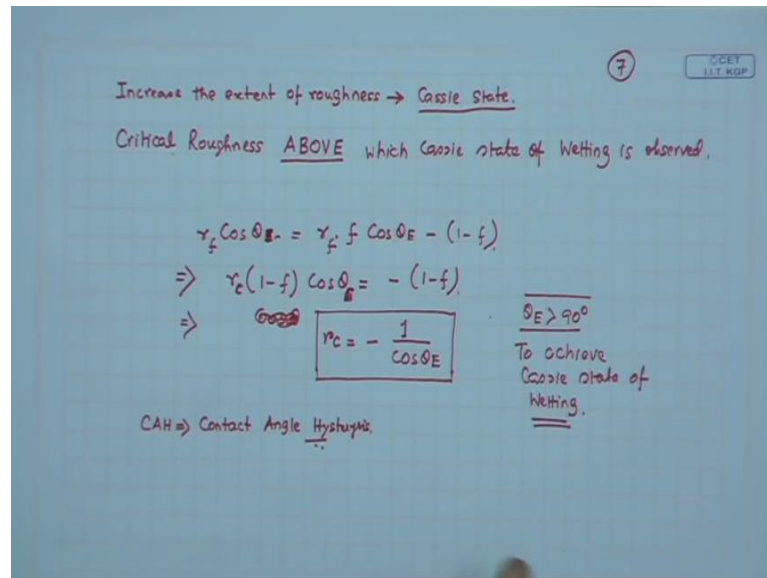 7
CCET
I.I.T. KGP
Increase the extent of roughness → Cassie State.
Critical Roughness ABOVE which Cassie state of Wetting is observed.
r_f Cos θ_E = r_f · f Cos θ_E - (1-f)
⇒ r_c (1-f) Cos θ_E = - (1-f)
⇒ r_c = - 1 / Cos θ_E
θ_E > 90°
To achieve
Cassie state of
Wetting.
CAH ⇒ Contact Angle Hysterysis.